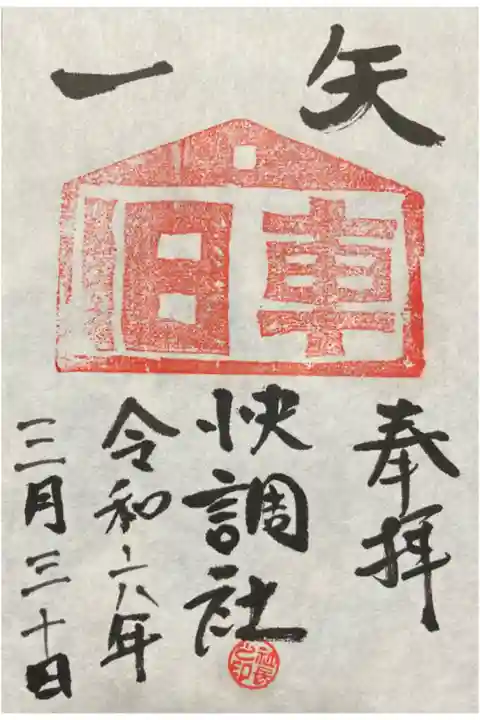 矢一
車旧
奉拝
快調社
令和六年
三月三十日